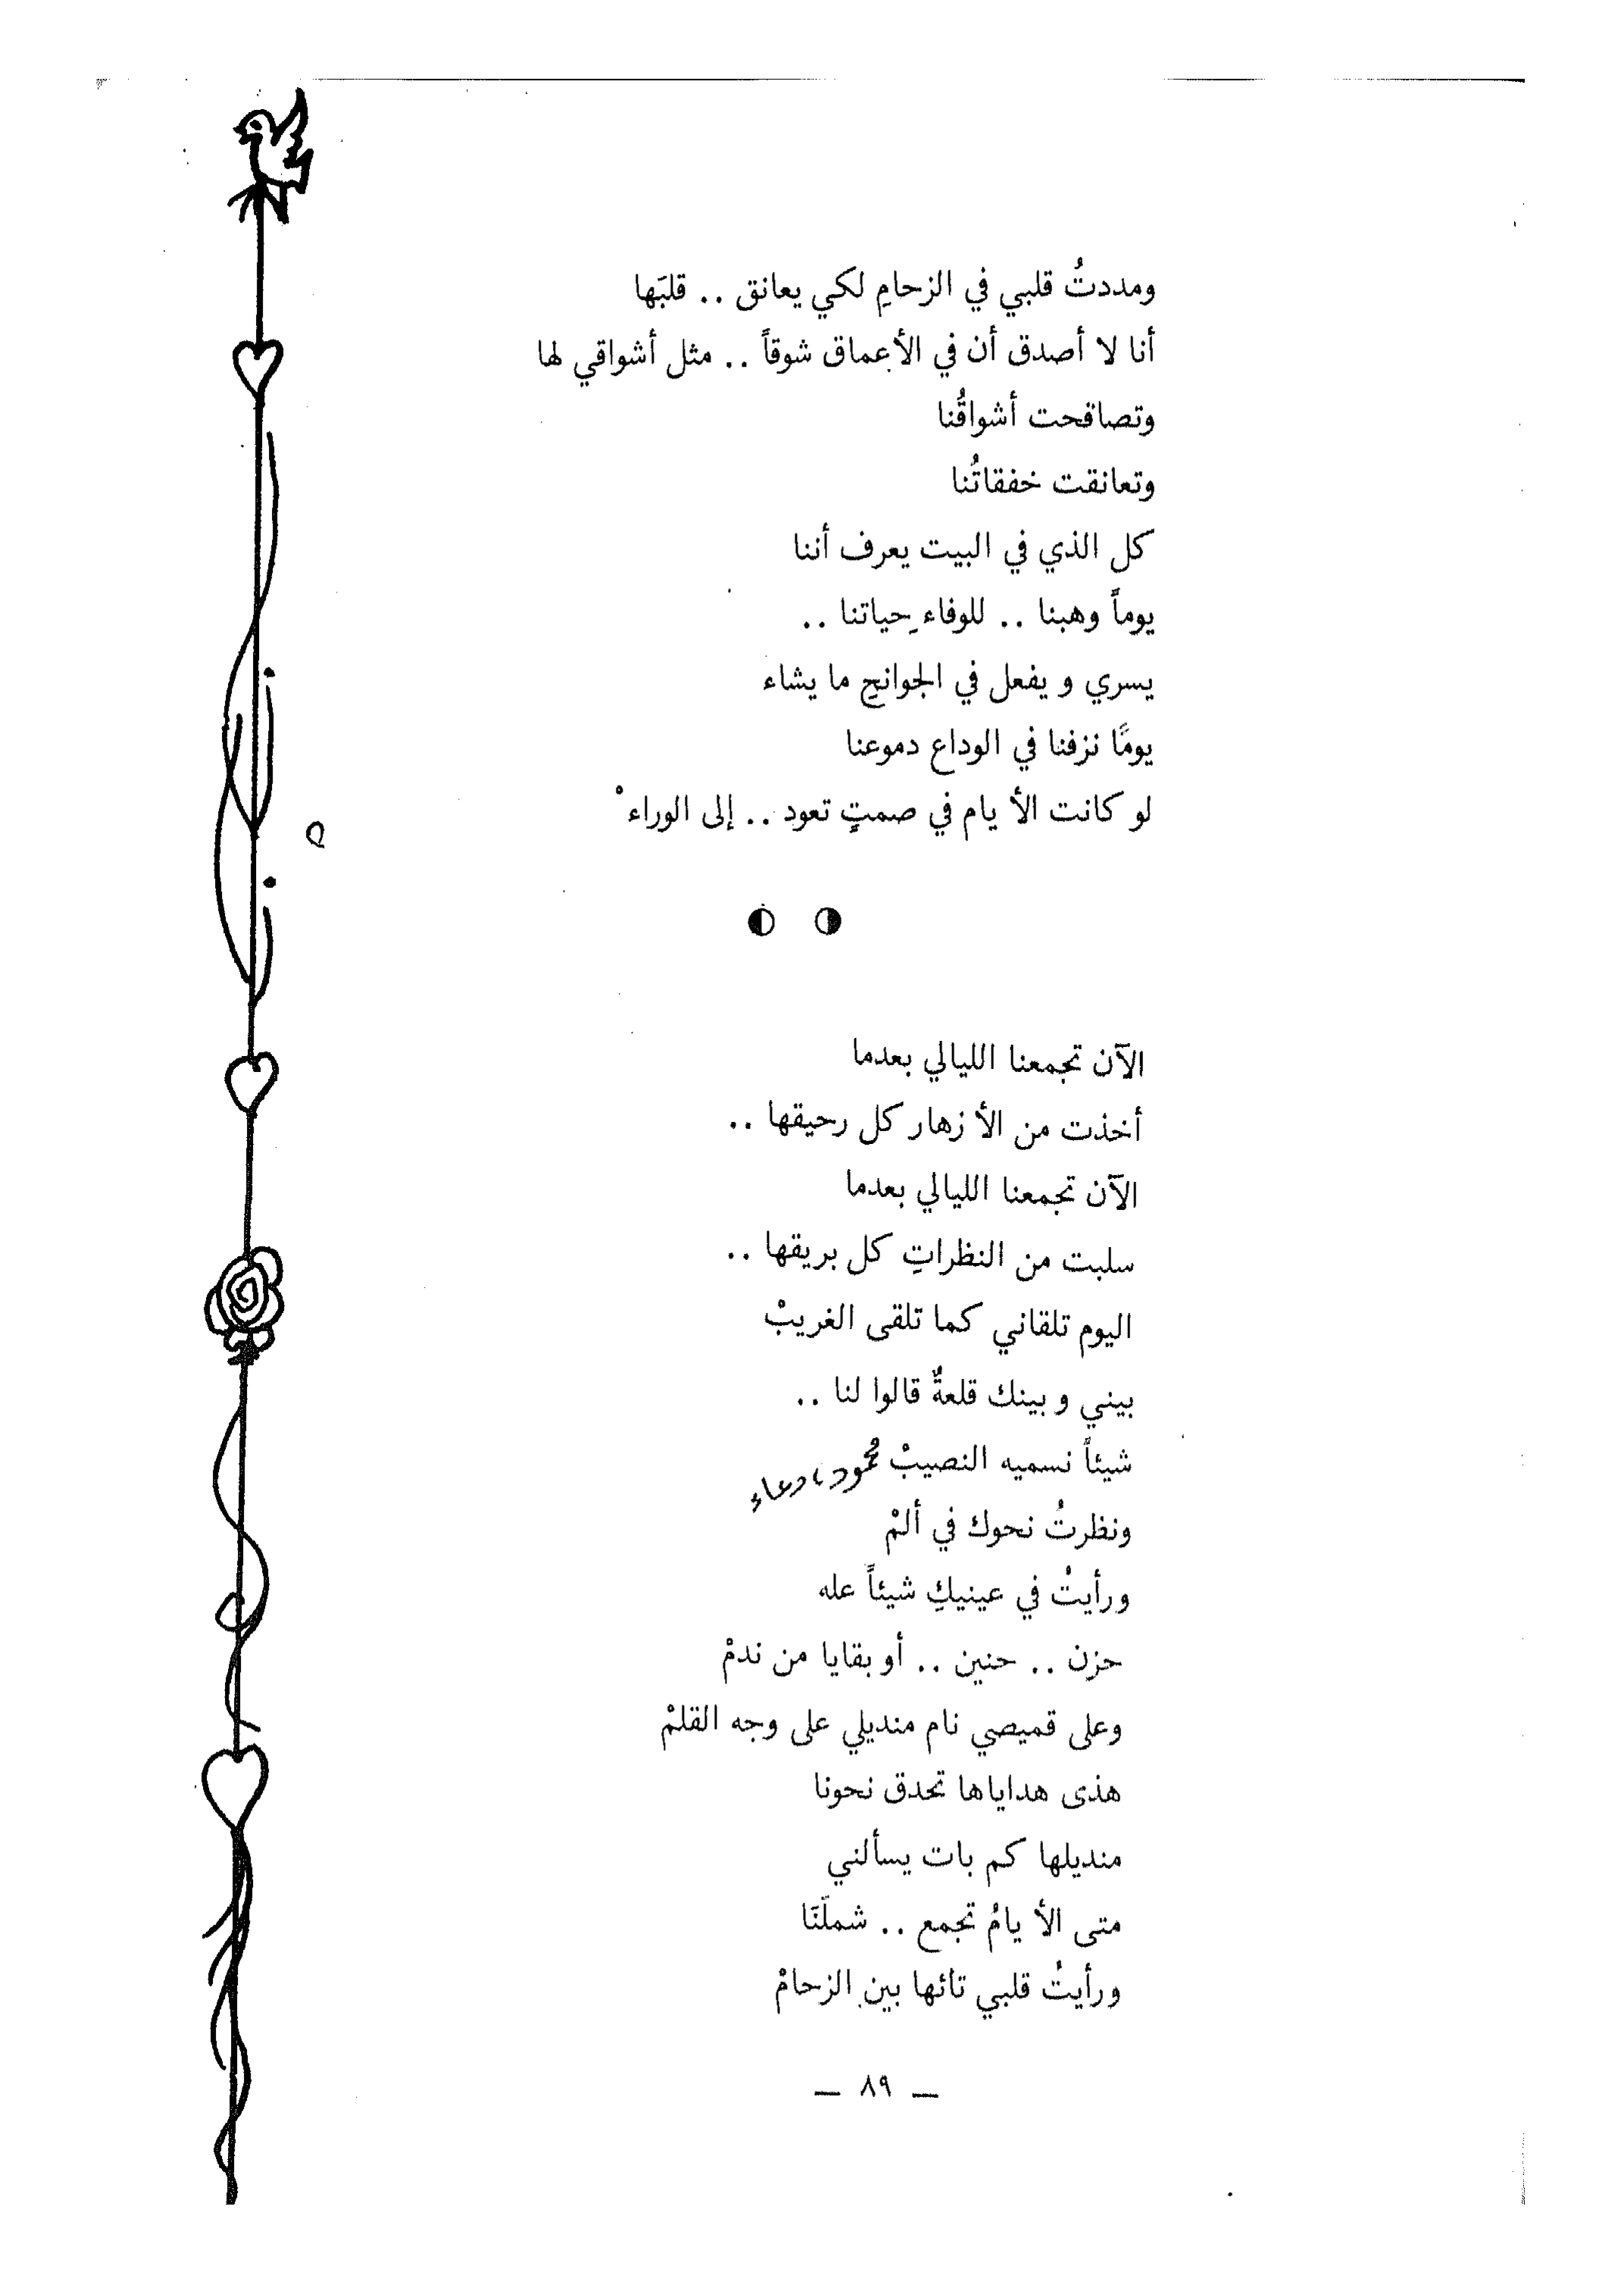 ومددتُ قلبي في الزحامِ لكي يعانق .. قلبَها
أنا لا أصدق أن في الأعماق شوقاً .. مثل أشواقي لها
وتصاقحت أشواقُنا
وتعانقت خفقاتُنا
كل الذي في البيت يعرف أننا
يوماً وهبنا .. للوفاءِ حياتنا ..
يسري و يفعل في الجوانحِ ما يشاء
يومًا نزفنا في الوداع دموعنا
لو كانت الأ يام في صمتٍ تعود .. إلى الوراءْ
الآن تجمعنا الليالي بعدما
أخذت من الأ زهار كل رحيقها ..
الآن تجمعنا الليالي بعدما
سلبت من النظراتِ كل بريقها ..
اليوم تلقاني كما تلقى الغريبْ
بيني و بينك قلعةٌ قالوا لنا ..
شيئاً نسميه النصيبْ محمود، دعاء
ونظرتُ نحوك في ألمْ
ورأيتُ في عينيكِ شيئاً عله
حزن .. حنين .. أو بقايا من ندمْ
وعلى قميصي نام منديلي على وجه القلمْ
هذى هداياها تحدق نحونا
منديلها كم بات يسألني
متى الأ يامُ تجمع .. شملَنَا
ورأيتُ قلبي تائها بين الزحامْ
— ٨٩ —